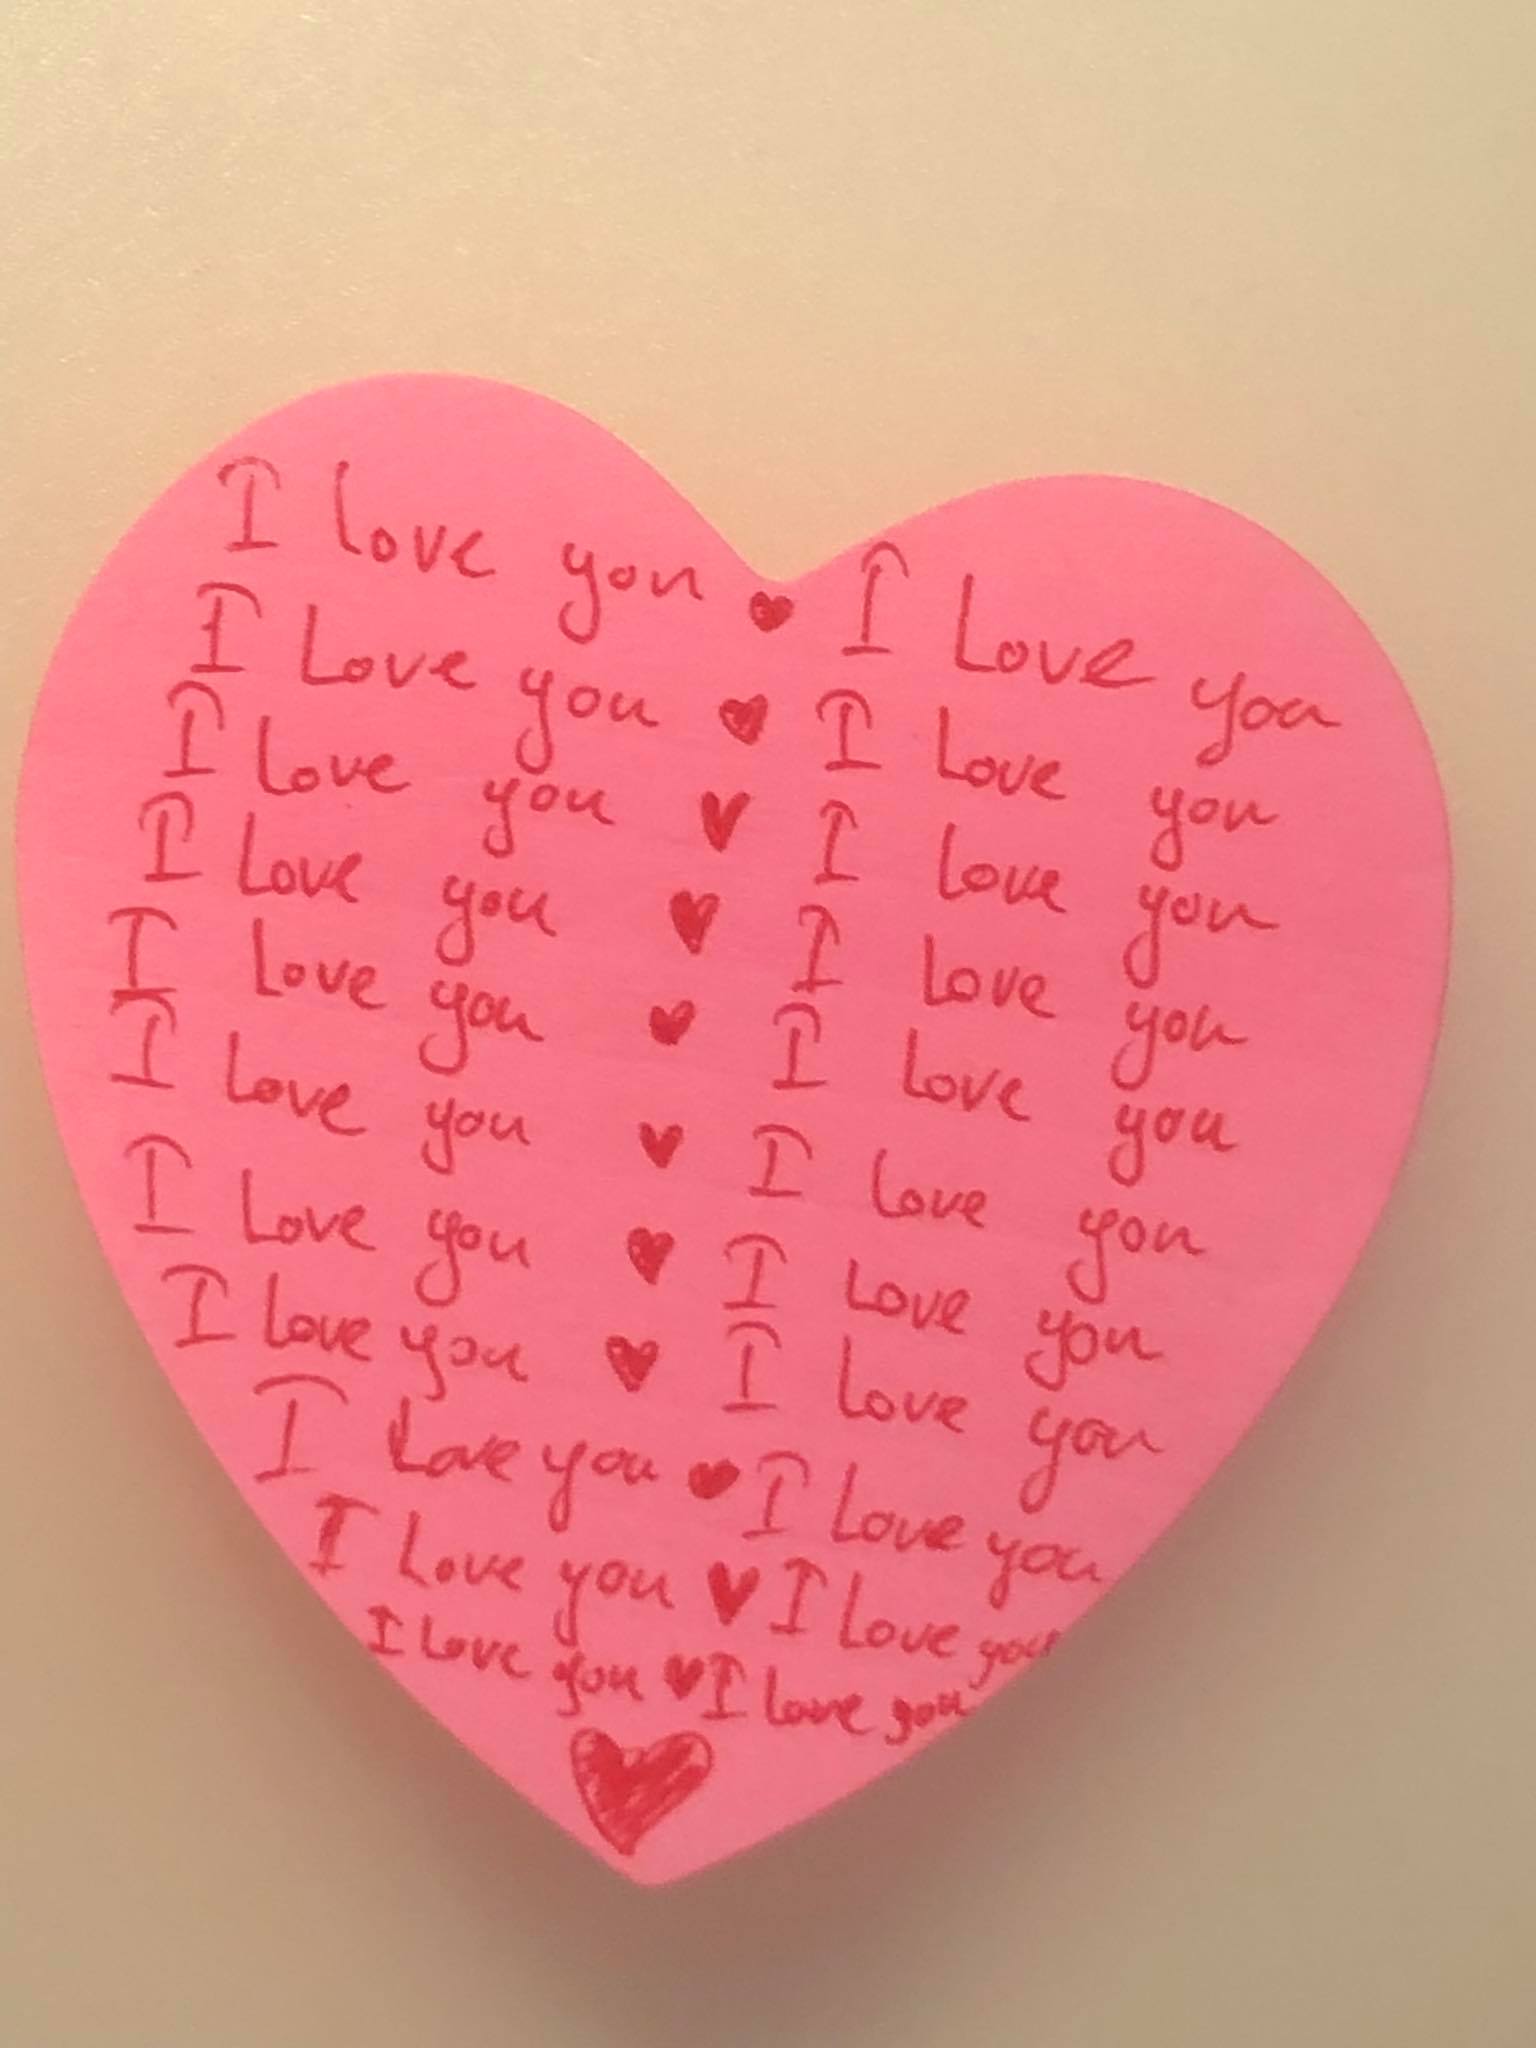 I love you ♥ I love you
I love you ♥ I love you
I love you ♥ I love you
I love you ♥ I love you
I love you ♥ I love you
I love you ♥ I love you
I love you ♥ I love you
I love you ♥ I love you
I love you ♥ I love you
I love you ♥ I love you
I love you ♥ I love you
♥